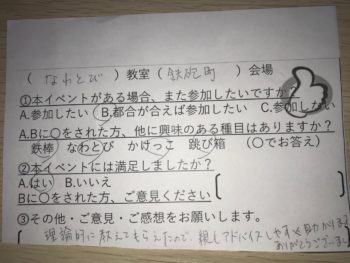 （ なわとび ）教室（ 鉄砲町 ）会場
①本イベントがある場合、また参加したいですか？
A.参加したい B.都合が合えば参加したい C.参加しない
A.Bに〇をされた方、他に興味のある種目はありますか？
鉄棒 なわとび かけっこ 跳び箱 （〇でお答え）
②本イベントには満足しましたか？
A.はい B.いいえ
Bに〇をされた方、ご意見ください
③その他・ご意見・ご感想をお願いします。
理論的に教えてもらえたので、親もアドバイスしやすく助かります
ありがとうございました